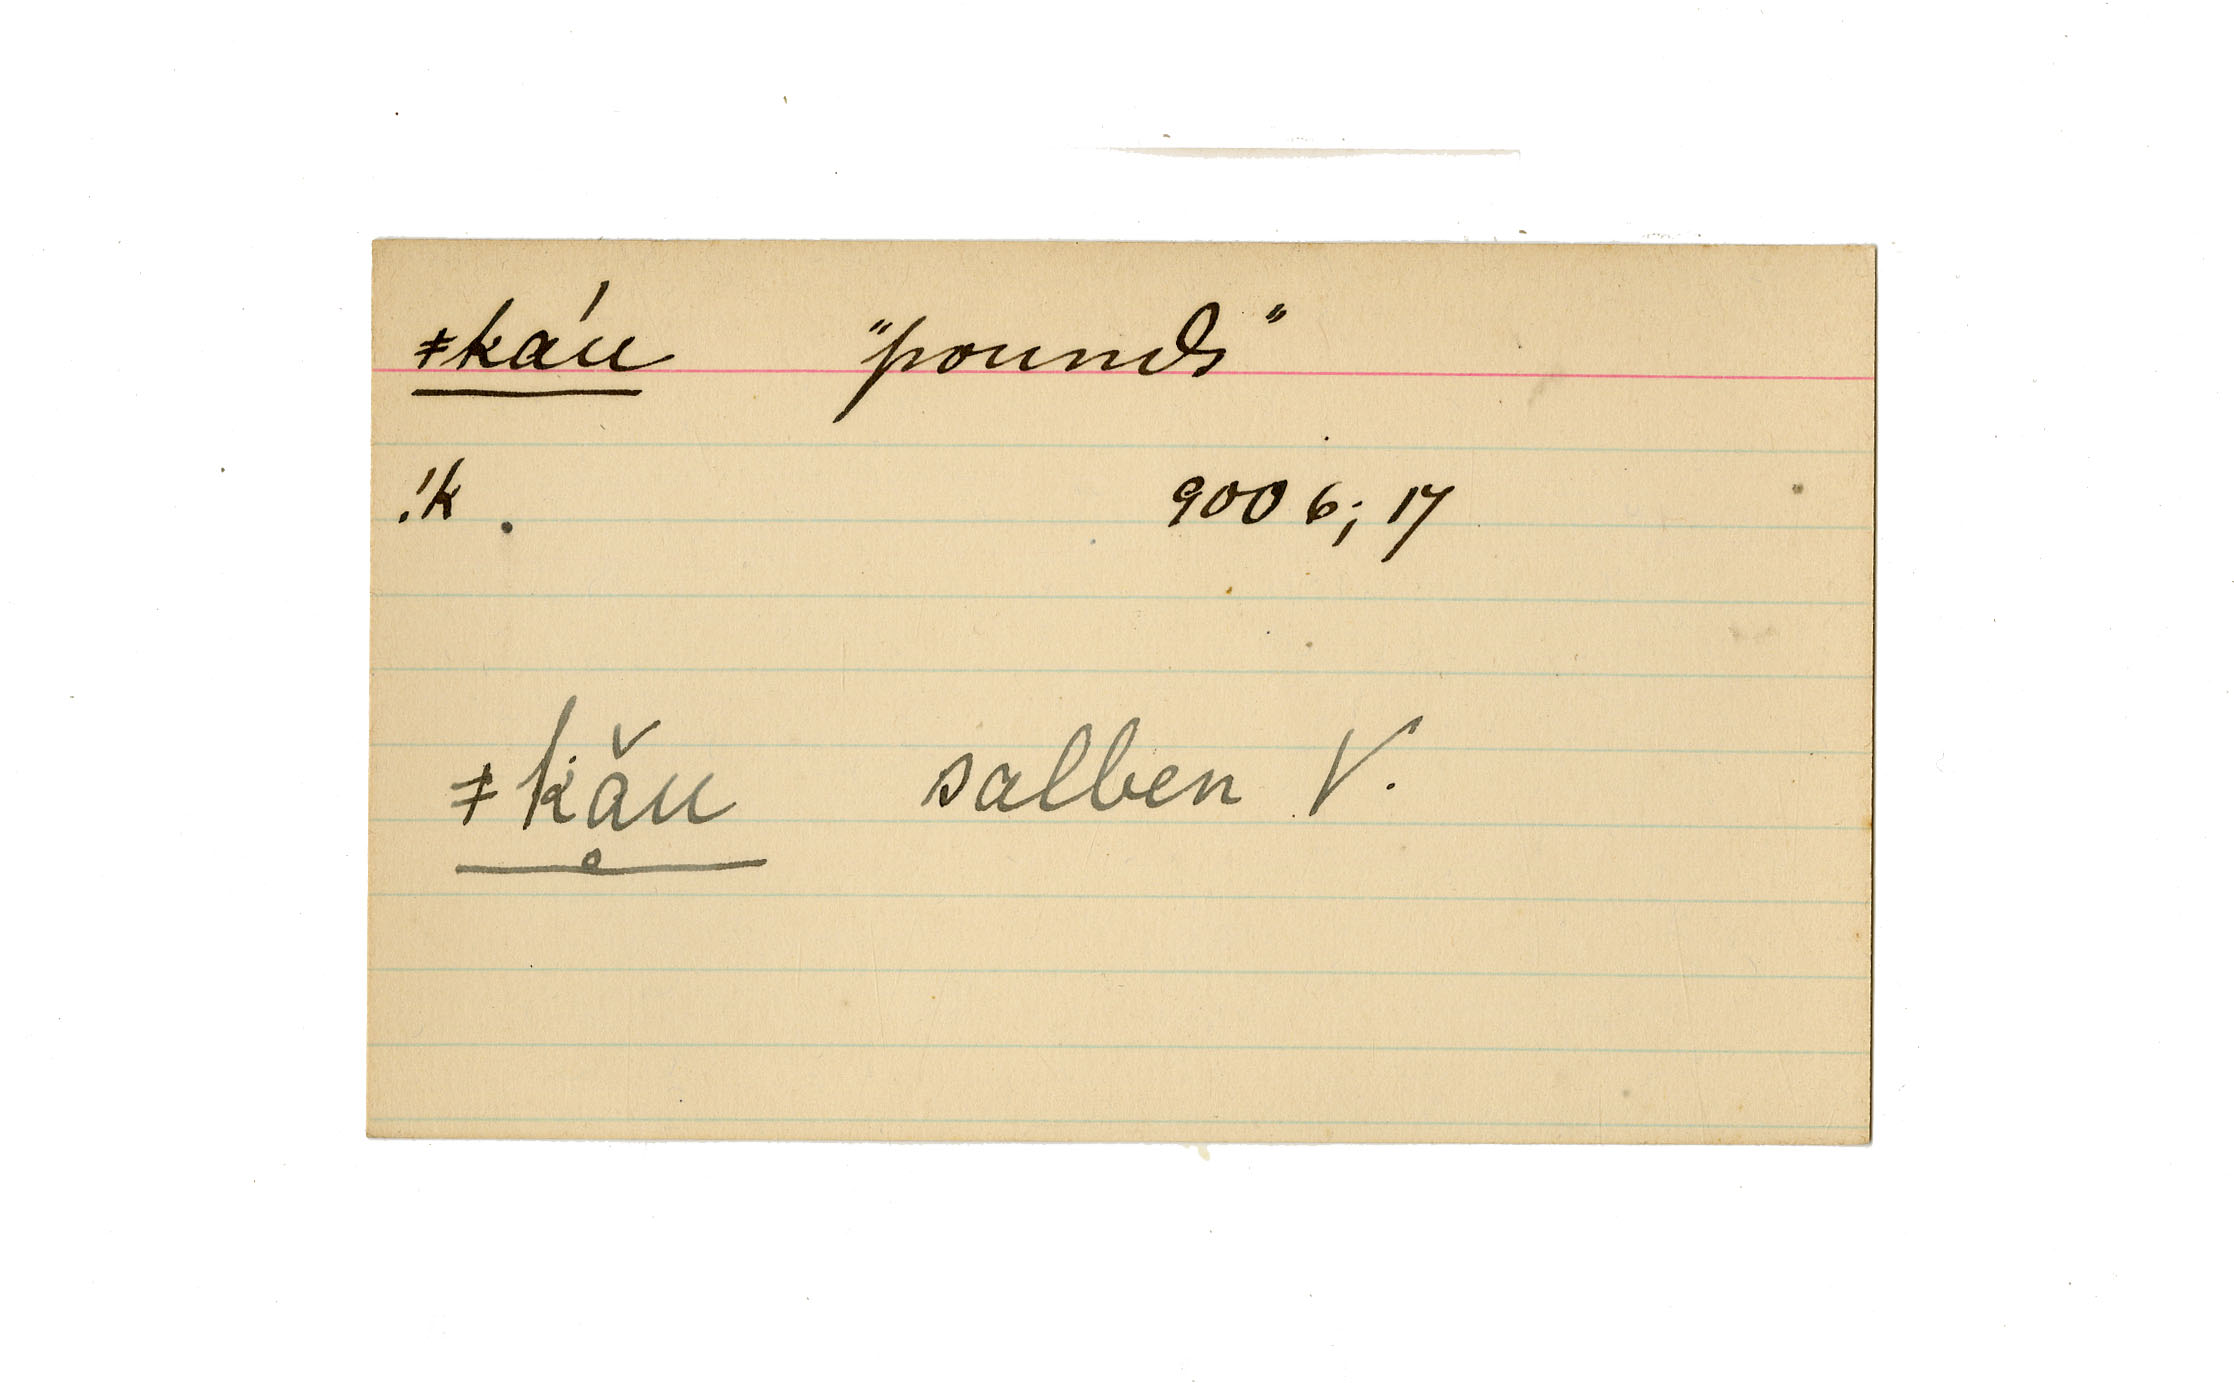 ǂkáu "pounds"
!k. 9006; 17
ǂkău̥ salben V.